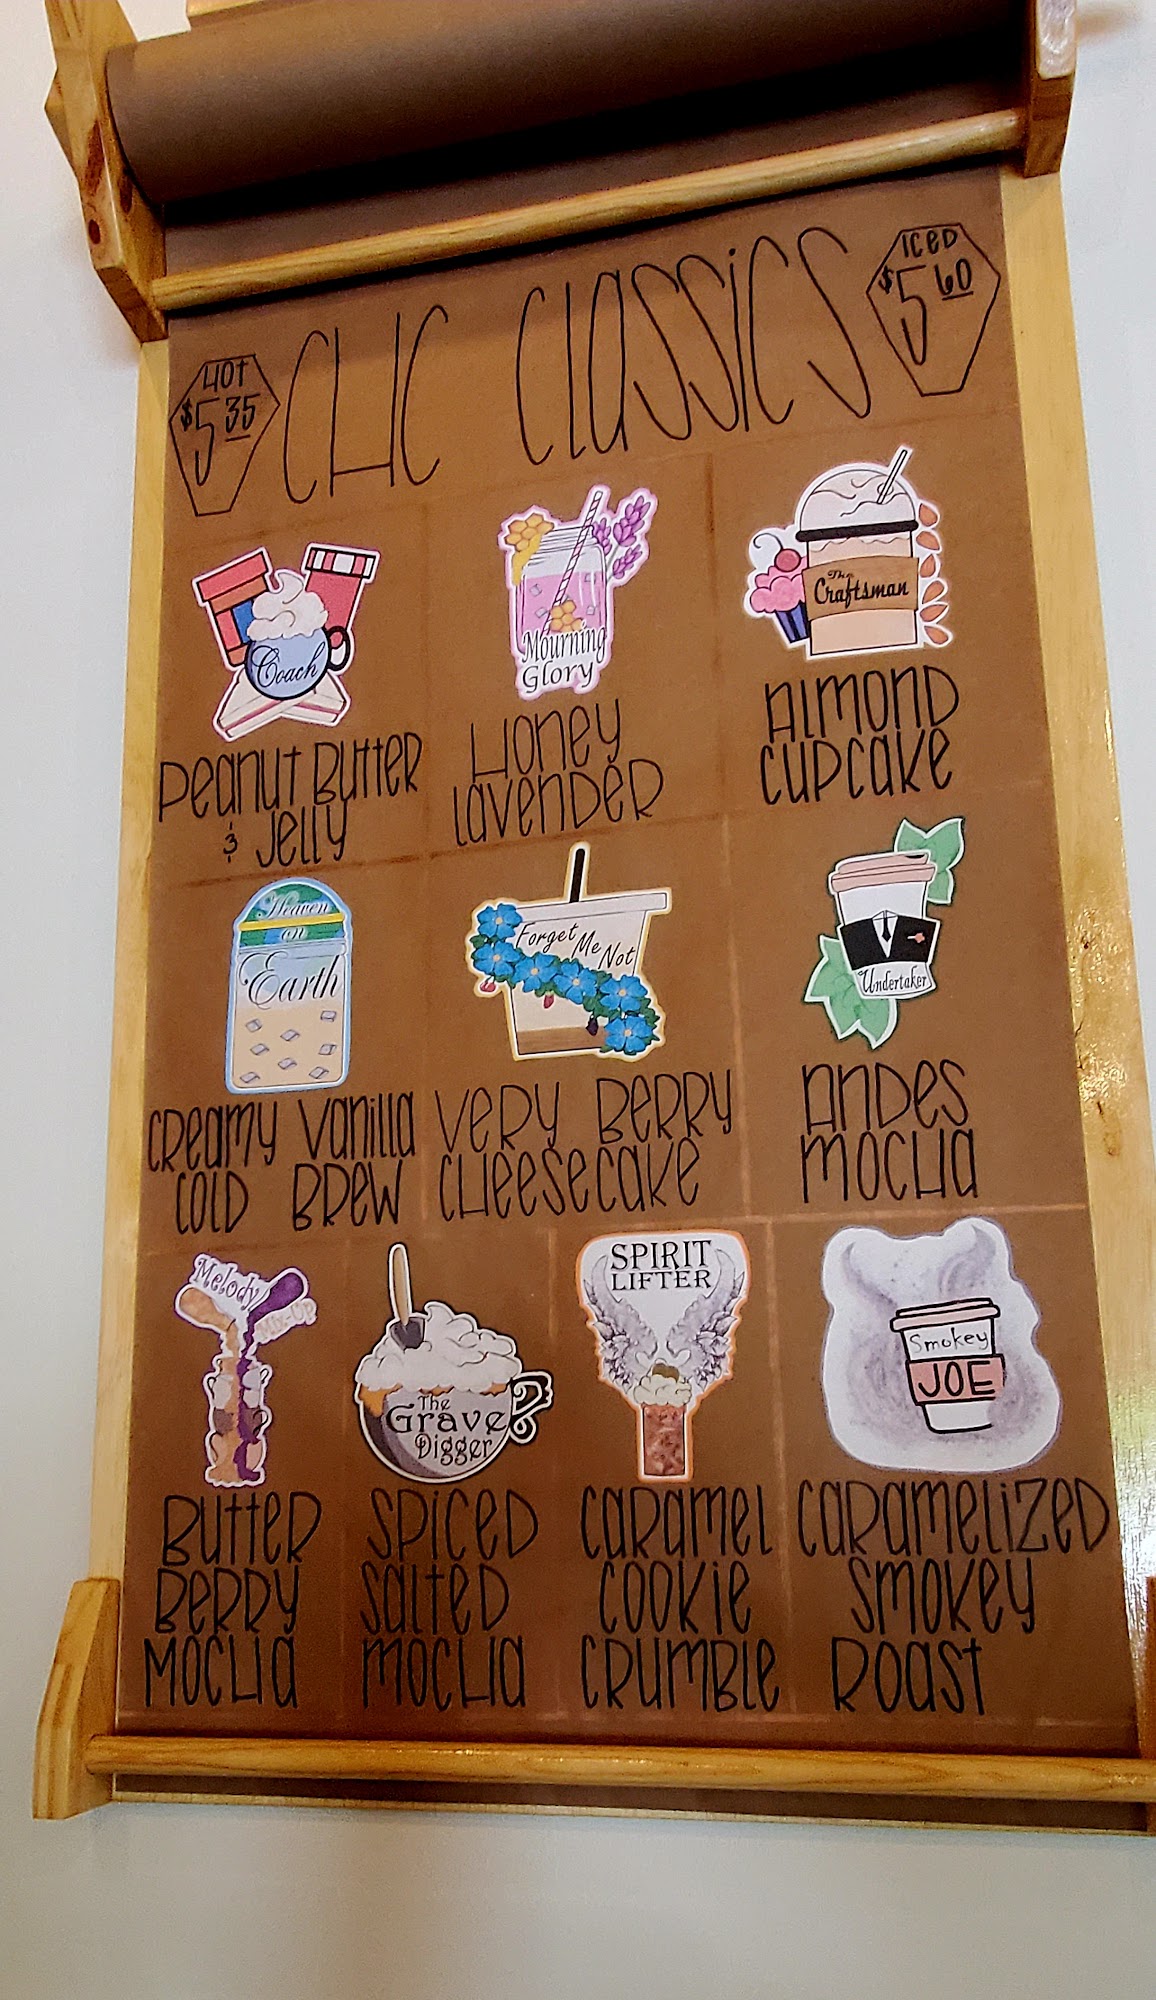 HOT
$5 35
CHC CLASSICS
ICED
$5 60
Coach
PEANUT BUTTER
& JELLY
Mourning
Glory
HONEY
LAVENDER
The
Craftsman
ALMOND
CUPCAKE
Heaven
on
Earth
CREAMY VANILLA
COLD BREW
Forget
Me
Not
VERY BERRY
CHEESECAKE
Undertaker
ANDES
MOCHA
Melody
Mix-Up
BUTTER
BERRY
MOCHA
The
Grave
Digger
SPICED
SALTED
MOCHA
SPIRIT
LIFTER
CARAMEL
COOKIE
CRUMBLE
Smokey
JOE
CARAMELIZED
SMOKEY
ROAST